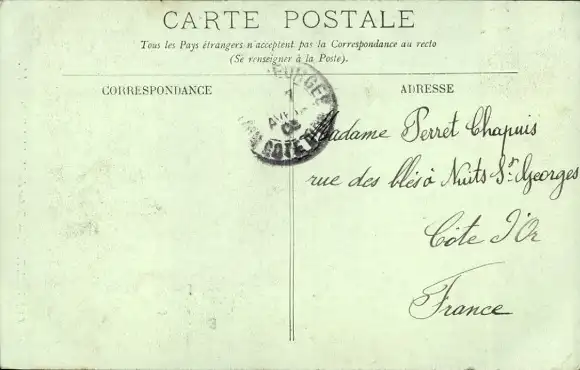 CARTE POSTALE
Tous les Pays étrangers n'acceptent pas la Correspondance au recto
(Se renseigner à la Poste).
CORRESPONDANCE
ADRESSE
Madame Perret Chapuis
rue des blés à Nuits St. Georges
Côte d'Or
France
COTE D'OR